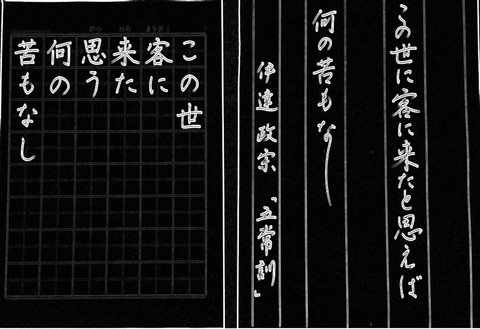 この世に客に来たと思えば
何の苦もなし
伊達政宗「五常訓」
この世
客に
来た
思う
何の
苦もなし